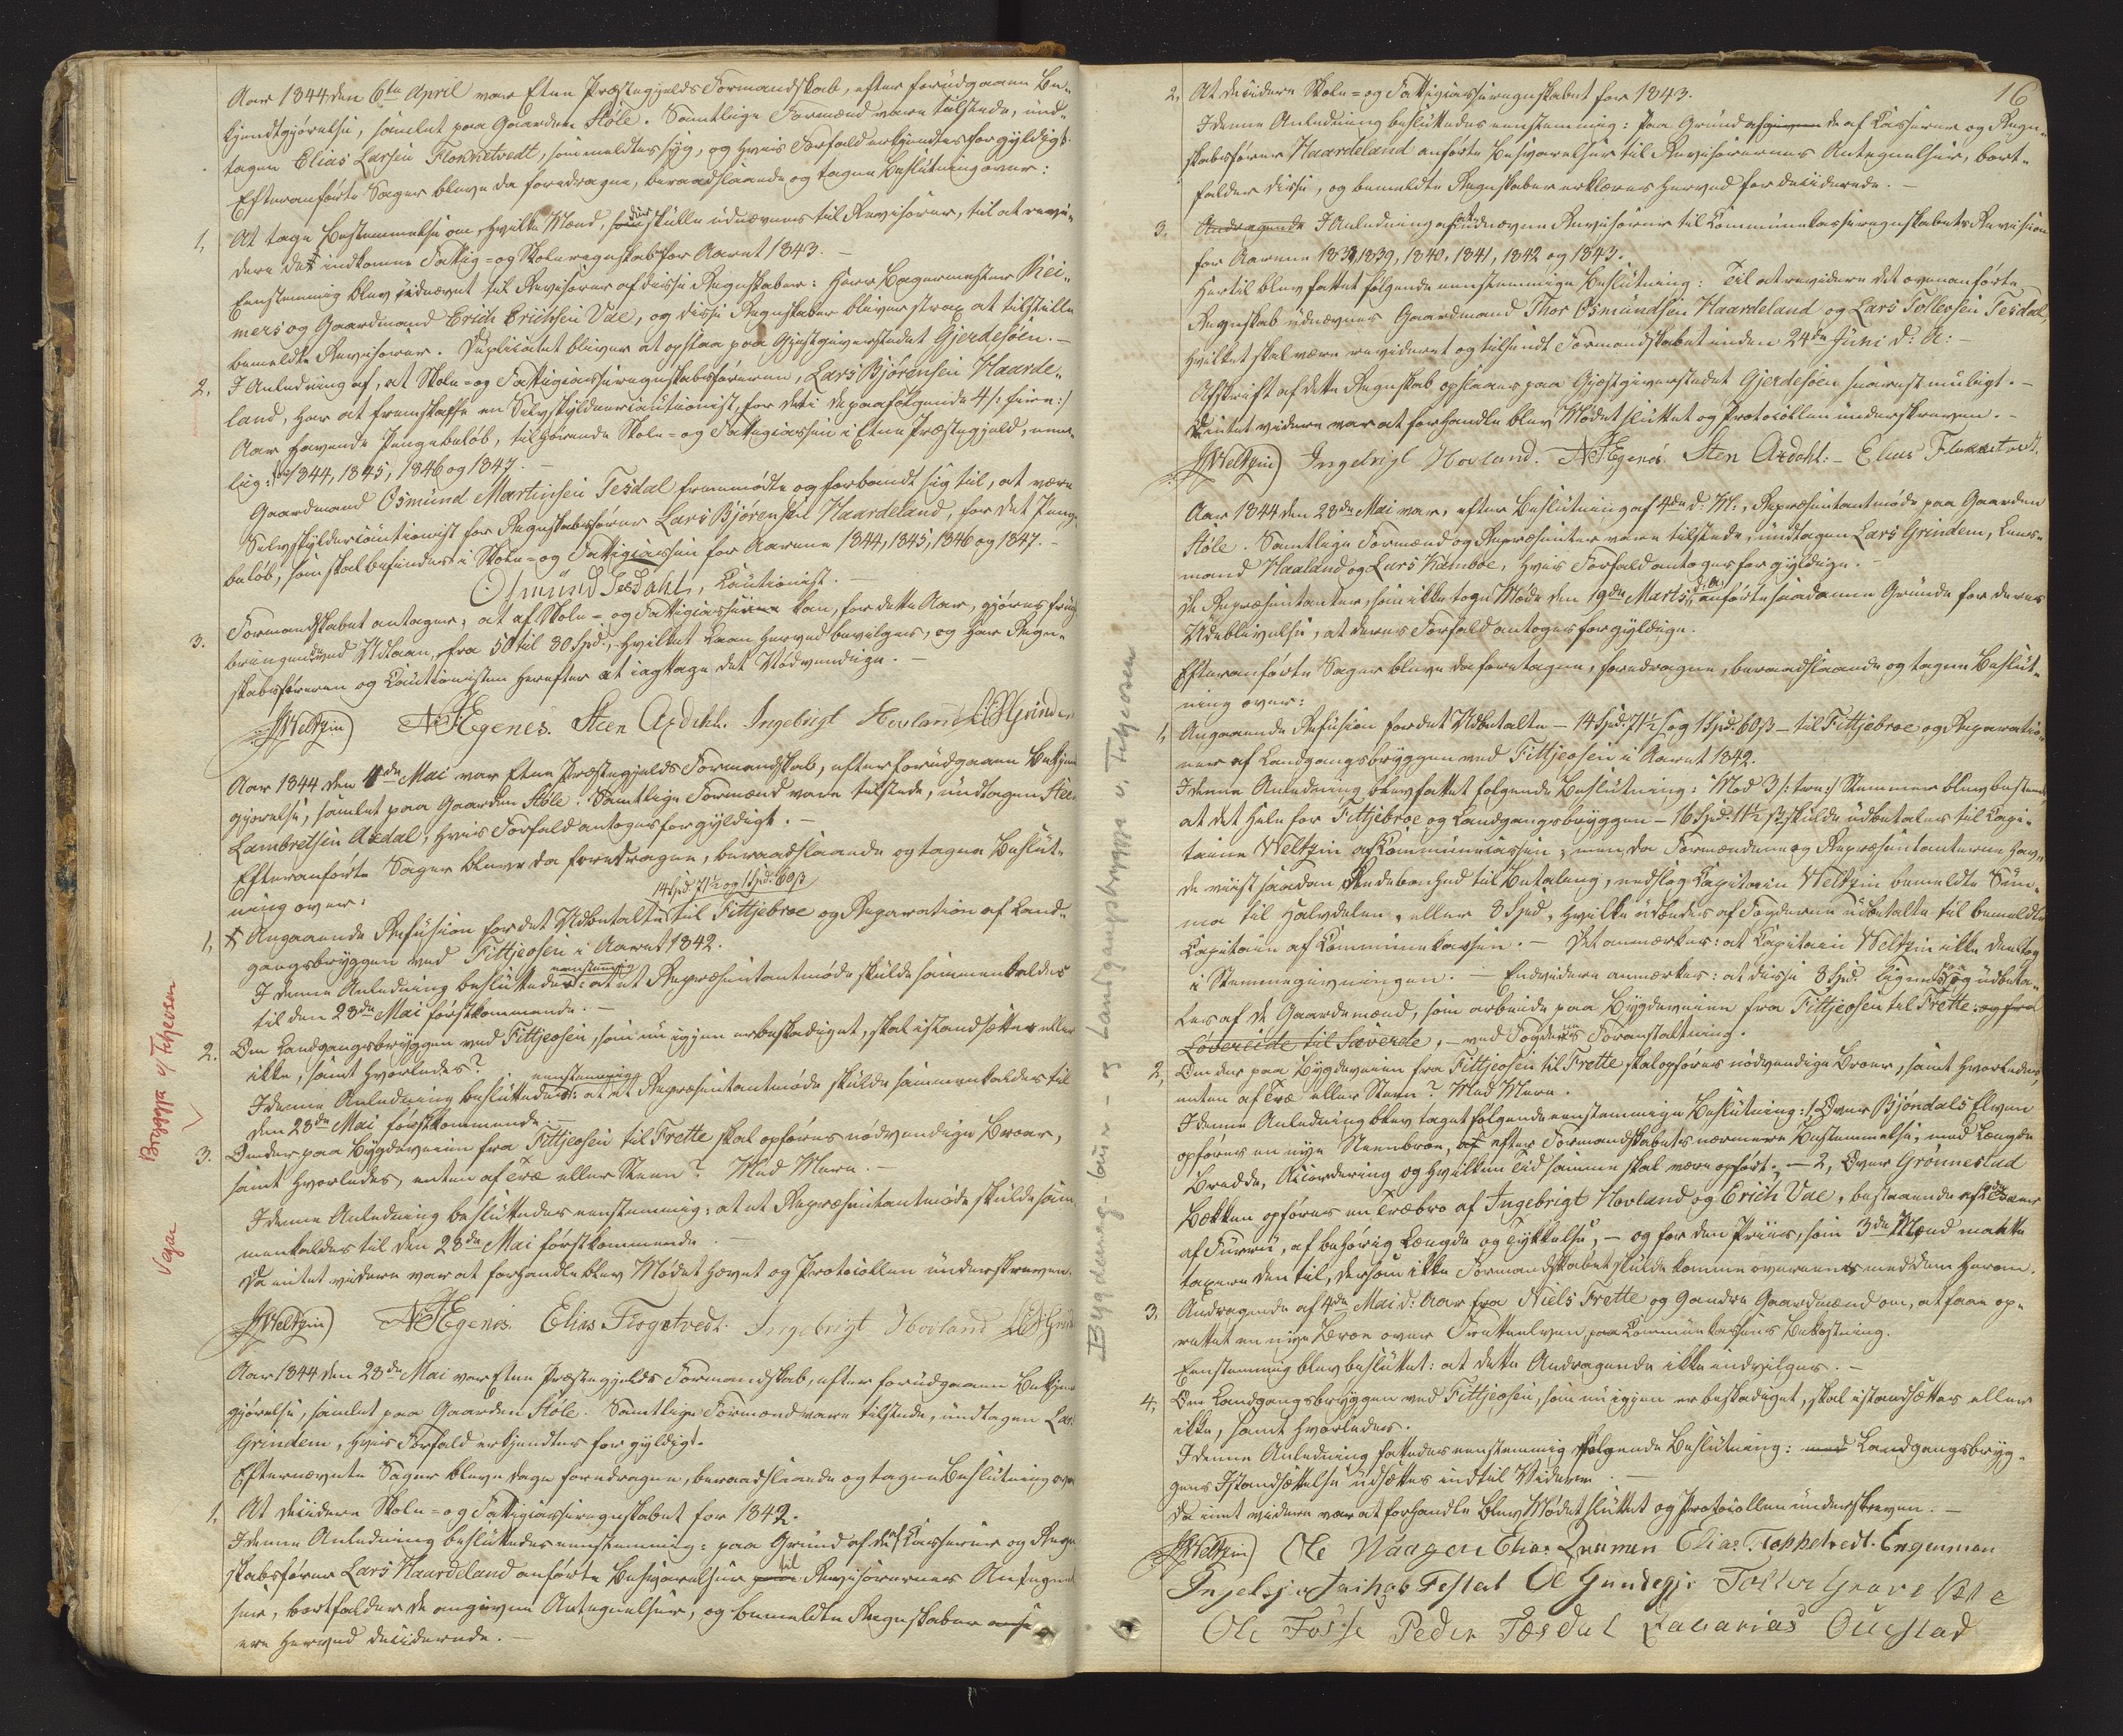 Aar 1844 den 6te April var Etne Præstegjelds Formandskab, efter forudgaaen Be-
kjendtgjørelse, samlet paa Gaarden Støle. Samtlige Formænd vare tilstede, und-
tagen Elias Larsen Flokketvedt, som meldtes syg, og hvis Forfald erkjendtes for gyldigt.
Efteranførte Sager bleve da foredragne, beraadslaaede og tagen Beslutning over:
1, At tage Bestemmelse om, hvilke Mænd, som der skulle udnævnes til Revisorer, til at revi-
dere det indkomne Fattig- og Skoleregnskab for Aaret 1843. -
Eenstemmig blev udnævnt til Revisorer af disse Regnskaber: Herr Bagermester Rei-
mers og Gaardmand Erich Erichsen Vae, og disse Regnskaber bliver strax at tilstille
bemeldte Revisorer. Duplicatet bliver at opslaa paa Gjestgiverstedet Gjerdesøen. -
2. I Anledning af, at Skole- og Fattigcasseregnskabsføreren, Lars Bjørensen Haarde-
land, har at fremskaffe en Selvskyldnercautionist, for det i de paafølgende 4 /: fire :/
Aar havende Pengebeløb, tilhørende Skole- og Fattigcassen i Etne Præstegjeld, nem-
lig: for 1844, 1845, 1846 og 1847. -
Gaardmand Osmund Martinsen Tesdal fremmødte og forbandt sig til, at være
Selvskyldnercautionist for Regnskabsfører Lars Bjørensen Haardeland, for det Penge-
beløb, som skal befindes i Skole- og Fattigcassen for Aarene 1844, 1845, 1846 og 1847. -
Osmund Tesdahl, Cautionist. -
3. Formandskabet antager, at af Skole- og Fattigcasserne kan, for dette Aar, gjøres frugt-
bringende ved Udlaan, fra 50 til 80 Spd., hvilket Laan herved bevilges, og har Regn-
skabsføreren og Cautionisten herefter at iagttage det Nødvendige. -
JWeltzin) NHEgenes. Steen Axdahl. Ingebrigt Hovland LBGrinden
Aar 1844 den 4de Mai var Etne Præstegjelds Formandskab, efter forudgaaen Bekjend
gjørelse, samlet paa Gaarden Støle. Samtlige Formænd vare tilstede, undtagen Steen
Lambretsen Axdal, hvis Forfald antoges for gyldigt. -
Efteranførte Sager bleve da foredragne, beraadslaaede og tagen Beslut-
ning over:
14 Spd 71½ og 1 Spd: 60ß
1, Angaaende Refusion for det Udbetalte til Fittjebroe og Reparation af Land-
gangsbryggen ved Fittjeosen i Aaret 1842.
eenstemmig
I denne Anledning besluttedes: at et Repræsentantmøde skulde sammenkaldes
til den 28de Mai førstkommende. -
2. Om Landgangsbryggen ved Fittjeosen, som nu igjen er beskadiget, skal istandsættes eller
ikke, samt hvorledes?
eenstemmig
I denne Anledning besluttedes: at et Repræsentantmøde skulde sammenkaldes til
den 28de Mai førstkommende. -
3. Om der paa Bygdeveien fra Fittjeosen til Frette skal opføres nødvendige Broer,
samt hvorledes, enten af Træ eller Steen? Med Mere. -
I denne Anledning besluttedes eenstemmig: at et Repræsentantmøde skulde sam-
menkaldes til den 28de Mai førstkommende. -
Da intet videre var at forhandle blev Mødet hævet og Protocollen underskreven.
JWeltzin) NHEgenes. Elias Flogetvedt. Ingebrigt Hovland
Aar 1844 den 28de Mai var Etne Præstegjelds Formandskab, efter forudgaaen Bekjend
gjørelse, samlet paa Gaarden Støle. Samtlige Formænd vare tilstede, undtagen Lars
Grindem, hvis Forfald erkjendtes for gyldigt.
Efternævnte Sager bleve dage foredragne, beraadslaaede og tagen Beslutning over
1, At decidere Skole- og Fattigcasseregnskabet for 1842.
I denne Anledning besluttedes eenstemmig: paa Grund af de af Casserer og Regn
skabsfører Lars Haardeland anførte Besvarelser til Revisorernes Antegnel
ser, bortfalder de angivne Antegnelser, og bemeldte Regnskaber
ere herved deciderede. -
Brygga v/ Fitjeosen
Vegar
Bygdeveg-bruer - og Landgangsbrygga v. Fitjeosen
16
2, At decidere Skole- og Fattigcasseregnskabet for 1843.
I denne Anledning besluttedes eenstemmig: Paa Grund af de af Casserer og Regn-
skabsfører Haardeland anførte Besvarelser til Revisorernes Antegnelser, bort-
falder disse, og bemeldte Regnskaber erklæres herved for deciderede. -
3. Andragende I Anledning af at udnævne Revisorer til Communekasseregnskabets Revision
for Aarene 1838, 1839, 1840, 1841, 1842 og 1843.
Hertil blev fattet følgende eenstemmige Beslutning: Til at revidere det ovenanførte
Regnskab udnævnes Gaardmand Thor Osmundsen Haardeland og Lars Tollevsen Tesdal,
hvilket skal være revideret og tilsendt Formandskabet inden 24de Juni d: A: -
Afskrift af dette Regnskab opslaaes paa Gjestgiverstedet Gjerdesøen snarest muligt. -
Da intet videre var at forhandle blev Mødet sluttet og Protocollen underskreven. -
JWeltzin) Ingebrigt Hovland. NHEgenes. Sten Axdahl. - Elias Flokketvedt.
Aar 1844 den 28de Mai var, efter Beslutning af 4de d: M:, Repræsentantmøde paa Gaarden
Støle. Samtlige Formænd og Repræsentanter vare tilstede, undtagen Lars Grindem, Lens-
mand Haaland og Lars Kamboe, hvis Forfald antoges for gyldige. -
De Repræsentanter, som ikke toge Møde den 19de Marts d: A: anførte saadanne Grunde for deres
Udeblivelse, at deres Forfald antoges for gyldige.
Efteranførte Sager bleve da foretagne, foredragne, beraadslaaede og tagen Beslut-
ning over:
1, Angaaende Refusion for det Udbetalte - 14 Spd. 71½ ß og 1 Spd. 60ß - til Fittjebroe og Reparatio-
ner af Landgangsbryggen ved Fittjeosen i Aaret 1842.
I denne Anledning blev fattet følgende Beslutning: Mod 3 /: tre :/ Stemmer blev bestemt
at det Hele for Fittjebroe og Landgangsbryggen - 16 Spd. 11½ ß skulde udbetales til Capi-
taine Weltzin af Communecassen; men da Formændene og Repræsentanterne hav-
de viist saadan Redebonhed til Betaling, nedslog Capitain Weltzin bemeldte Sum-
ma til Halvdelen, eller 8 Spd, hvilke udredes af Fogderne udbetalte til bemeldte
Capitain af Communekassen. - Det anmærkes: at Capitain Weltzin ikke deeltog
i Stemmegivningen. - Endvidere anmærkes: at disse 8 Spd. lignes paa og udbeta-
les af de Gaardmænd, som arbeide paa Bygdeveien fra Fittjeosen til Frette og fra
Løvereide til Sæverede, - ved Fogdens Foranstaltning.
2, Om der paa Bygdeveien fra Fittjeosen til Frette skal opføres nødvendige Broer, samt hvorledes,
enten af Træ eller Steen? Med Mere.
I denne Anledning blev taget følgende eenstemmige Beslutning: 1, Over Bjøndals Elven
opføres en nye Steenbroe, af efter Formandskabets nærmere Bestemmelse, med Længde
Bredde, Accordering og hvilken Tid samme skal være opført. - 2, Over Grønnestad
Bækken opføres en Træbro af Ingebrigt Hovland og Erich Vae, bestaaende af
af Furru, af behørig Længde og Tykkelse, - og for den Priis, som 3de Mænd maatte
taxere den til, dersom ikke Formandskabet skulde komme overeens med dem herom.
3, Andragende af 4de Mai d: Aar fra Niels Frette og 9 andre Gaardmænd om, at faae op-
rettet en nye Broe over Fretteelven paa Communkassens Bekostning.
Eenstemmig blev besluttet: at dette Andragende ikke indvilges. -
4, Om Landgangsbryggen ved Fittjeosen, som nu igjen er beskadiget, skal istandsættes eller
ikke, samt hvorledes.
I denne Anledning fattedes eenstemmig følgende Beslutning: med Landgangsbryg-
gens Istandsættelse udsættes indtil Videre. -
Da intet videre var at forhandle blev Mødet sluttet og Protocollen underskreven. -
JWeltzin) Ole Haagen Elias Elias Flokketvedt.
Jachob Festad Tollev Grave
Ole Fosse Peder Tesdal Zacarias Øuestad